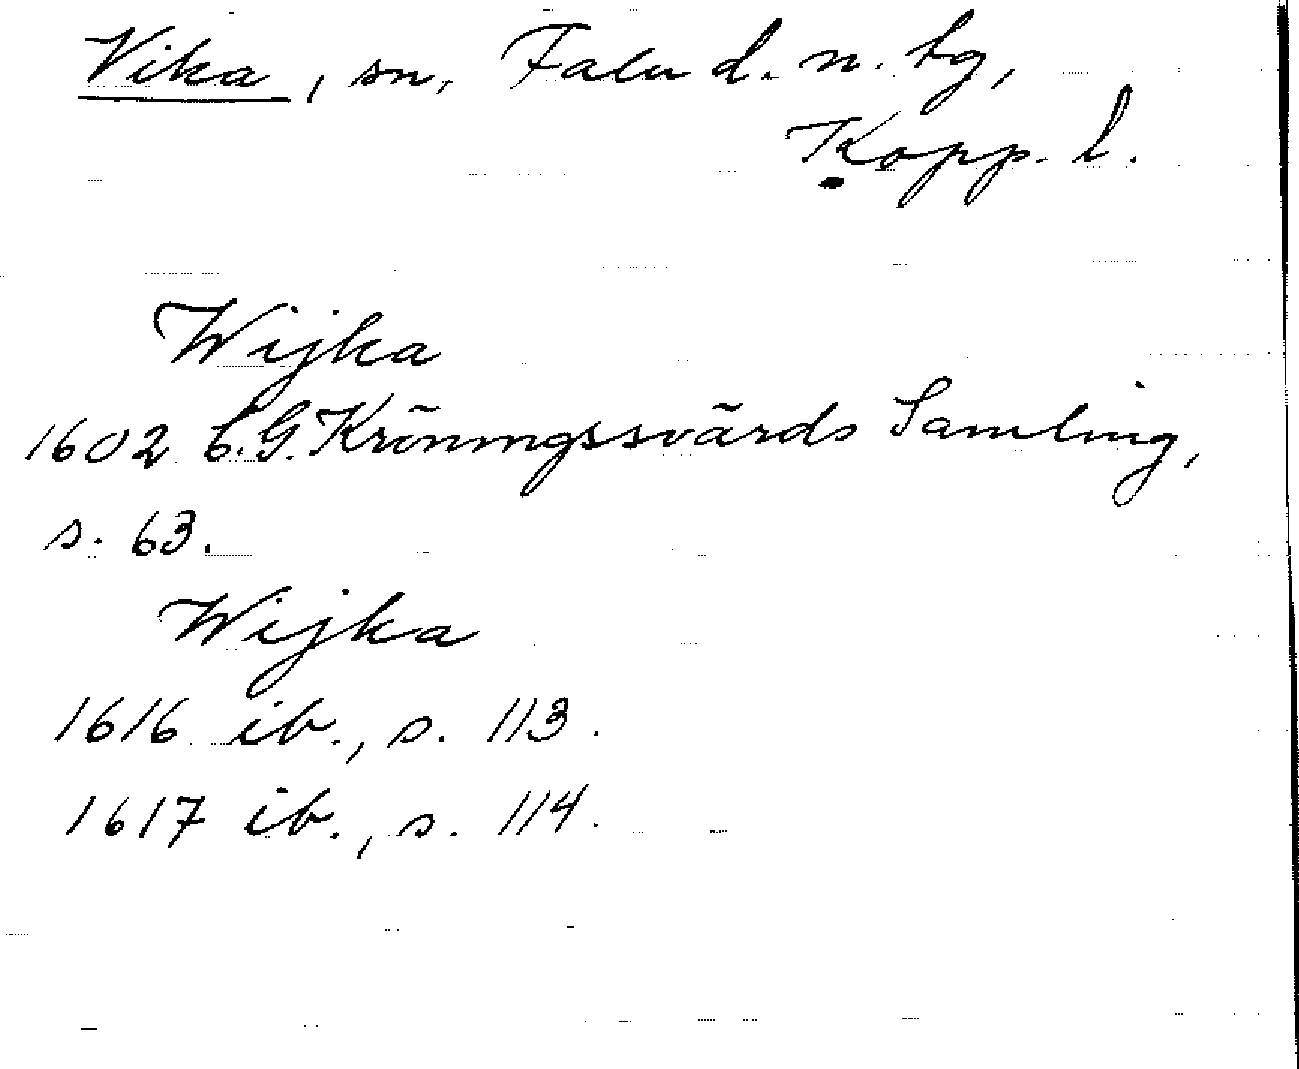 Vika, sn, Falu d. n. tg,
Kopp. l.
Wijka
1602 C.G. Kröningssvärds Samling,
s. 63.
Wijka
1616 ib., s. 113.
1617 ib., s. 114.